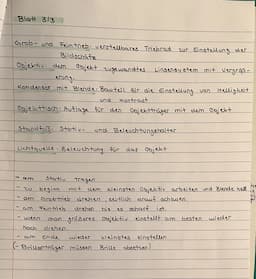 Blatt 3/3
Grob- und Feintrieb: verstellbares Triebrad zur Einstellung der
Bildschärfe
Objektiv: dem Objekt zugewandtes Linsensystem mit Vergröß-
erung.
Kondensor mit Blende: Bauteil für die Einstellung von Helligkeit
und Kontrast
Objekttisch: Auflage für den Objektträger mit dem Objekt
Standfuß: Stativ- und Beleuchtungshalter
Lichtquelle: Beleuchtung für das Objekt
- am Stativ tragen
- zu Beginn mit dem kleinsten Objektiv arbeiten und Blende
- am Grobtrieb drehen seitlich drauf schauen
- am Feintrieb drehen bis es scharf ist
- wenn man größeres Objektiv einstellt am besten wieder
hoch drehen
- am Ende wieder kleinstes einstellen
(- Brillenträger müssen Brille absetzen)